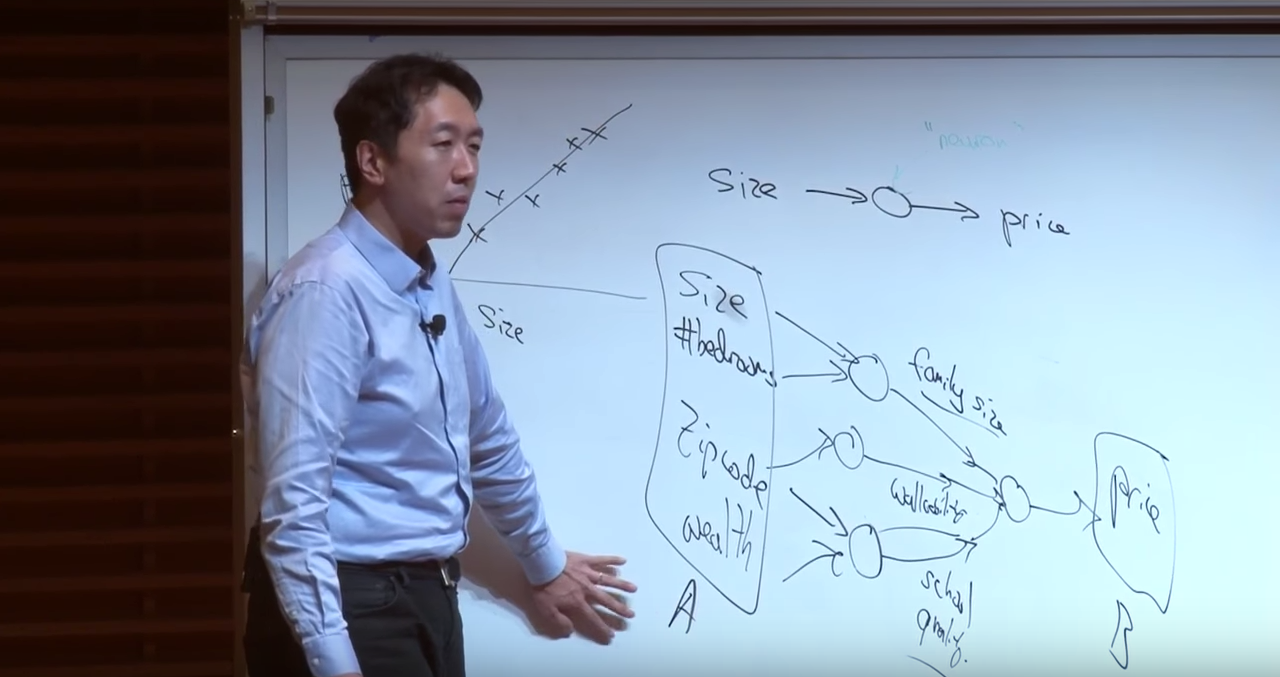 "neuron"
Size
price
Size
Size
#bedrooms
Zipcode
wealth
A
family size
walkability
school
quality.
price
B